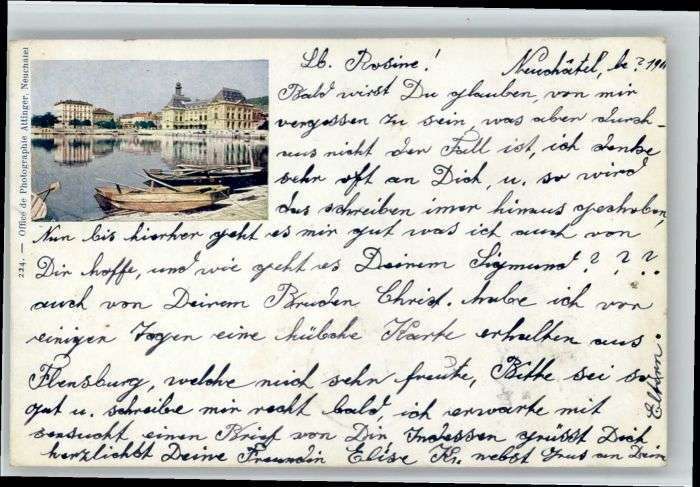 Lb. Rosine!
Neuchâtel, 191
Bald wirst Du glauben, von mir
vergessen zu sein, was aber durch-
aus nicht der Fall ist, ich denke
sehr oft an Dich, u. so wird
das schreiben imer hinaus geschoben,
Nun bis hierher geht es mir gut was ich auch von
Dir hoffe, und wie geht es Deinem Sigmund? ? ?
auch von Deirem Bruder Christ. habe ich vor
einigen Tagen eine hübche Karte erhalten aus
Flensburg, welche mich sehr freute, Bitte sei so
gut u. schreibe mir recht bald, ich erwarte mit
sensucht einen Brief von Dir, Indessen grüsst Dich
herzlichst Deine Freundin Elise Kr. nebst Grus an Dein
Eltern.
224. — Office de Photographie Attinger, Neuchatel